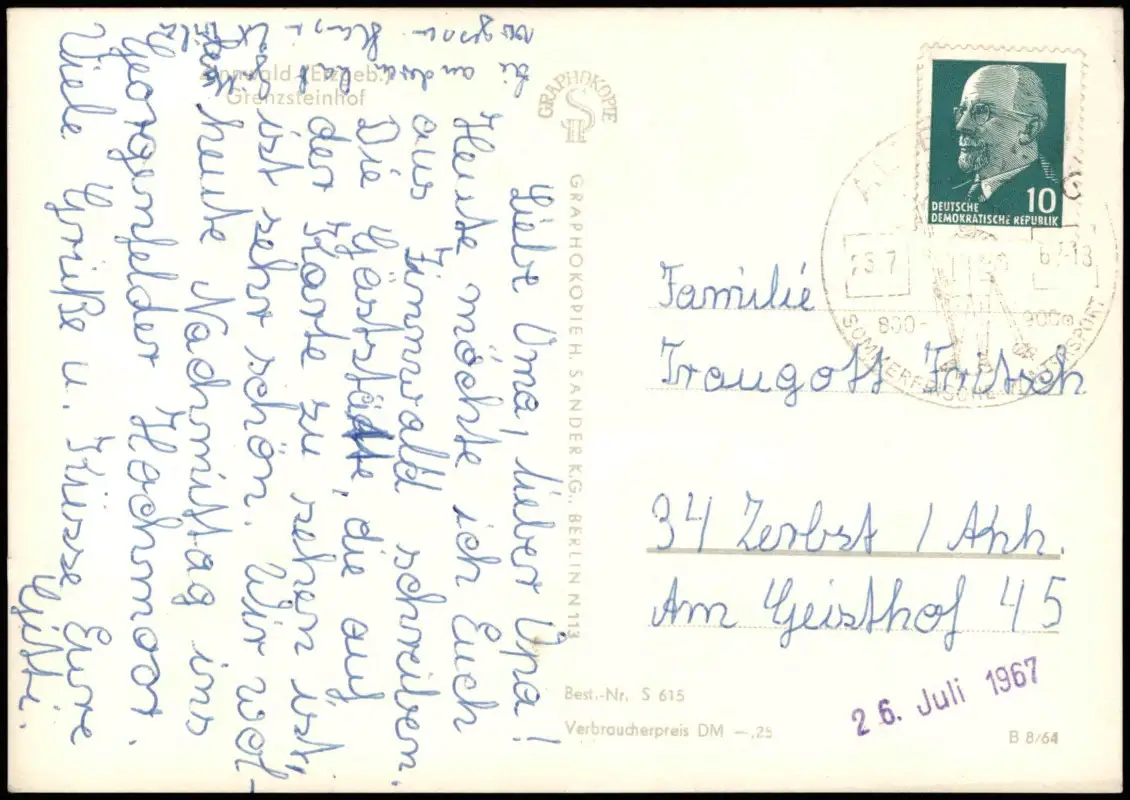 Zinnwald (Erzgeb.)
Grenzsteinhof
Liebe Oma, lieber Opa!
Heute möchte ich Euch
aus Zinnwald schreiben.
Die Gaststätte, die auf
der Karte zu sehen ist,
ist sehr schön. Wir wol-
len heute Nachmittag ins
Georgenfelder Hochmoor.
Viele Grüße u. Küsse Eure
Gitti.
GRAPHOKOPIE
GRAPHOKOPIE H. SANDER K.G., BERLIN N 113
DEUTSCHE
DEMOKRATISCHE REPUBLIK
10
67-18
800-
900m
SOMMERFRISCHE WINTERSPORT
Familie
Traugott Fritsch
34 Zerbst / Anh.
Am Geisthof 45
26. Juli 1967
Best.-Nr. S 615
Verbraucherpreis DM —,25
B 8/64